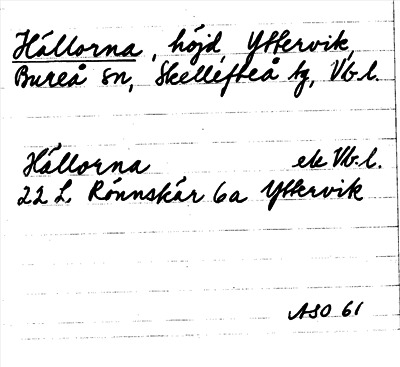 Hällorna, höjd, Yttervik,
Bureå sn, Skellefteå tg, Vb. l.
Hällorna ek Vb. l.
22 L Rönnskär 6a Yttervik
ASO 61